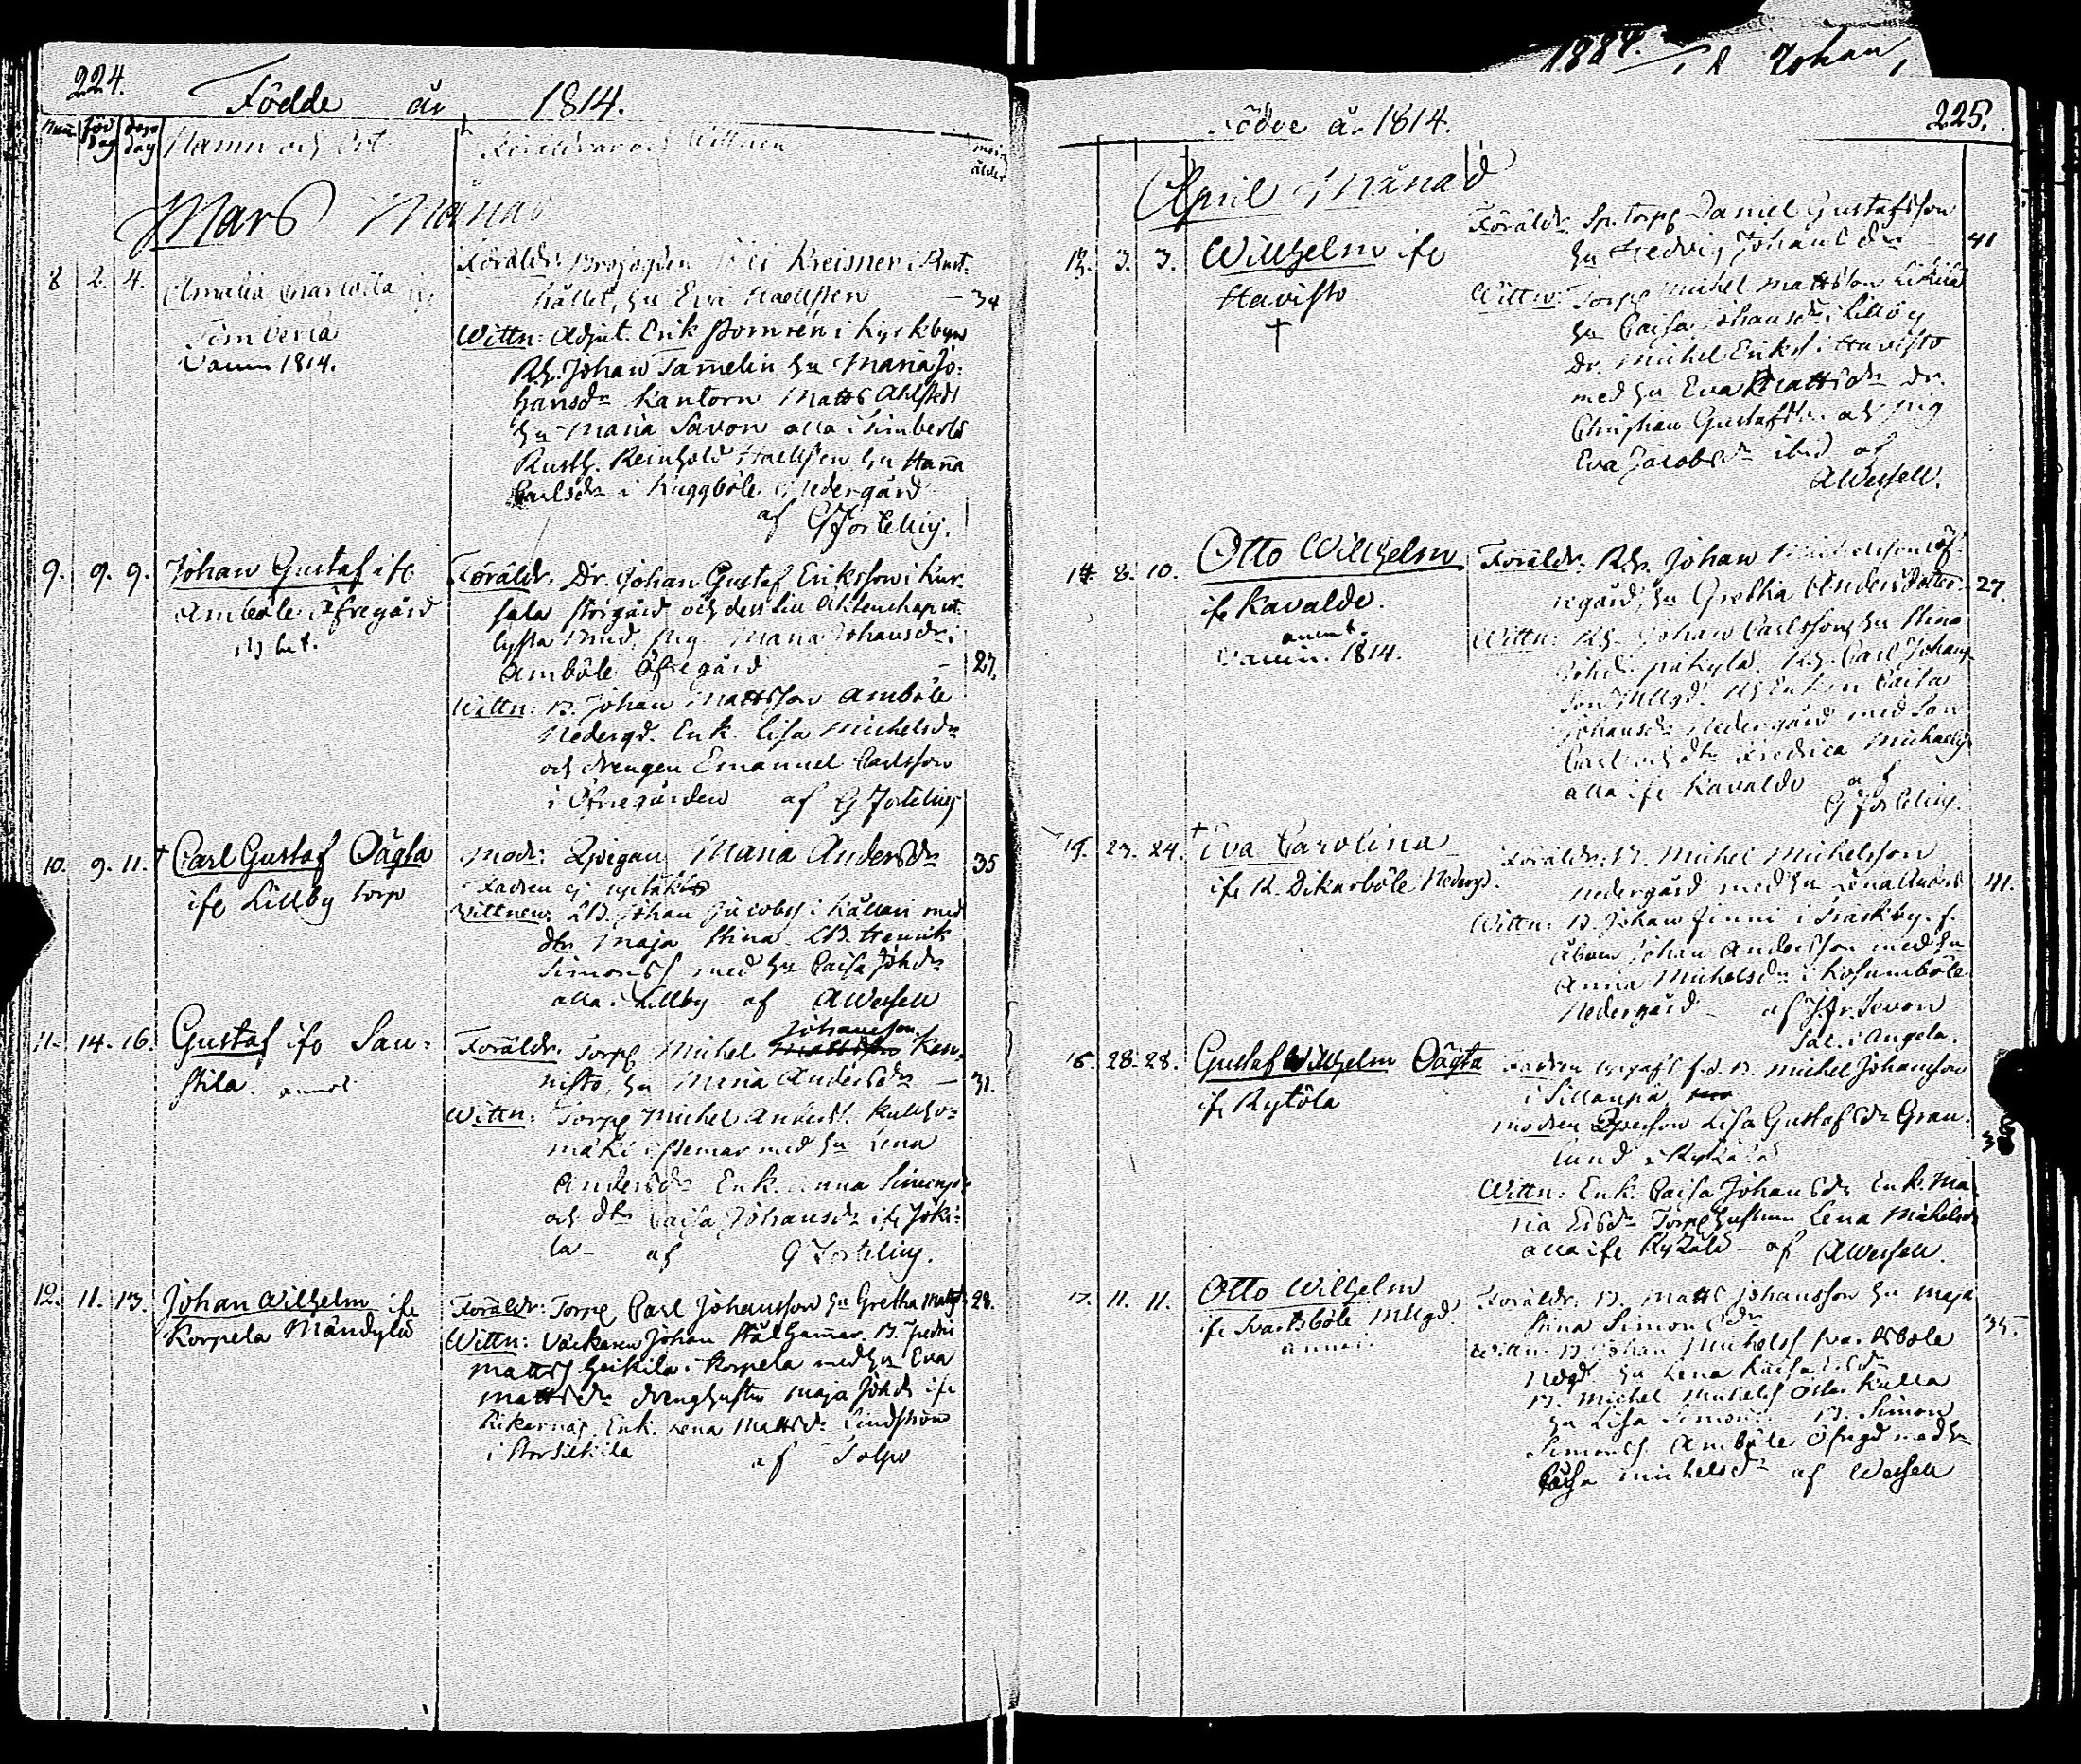 224.
Födde år 1814.
Num föd dag döpe dag Namn och Ort Föräldrar och Wittnen mors ålder
Mars Månad
8 2. 4. Amalia
Föräldr: Kreisner i Rust-
hållet, hu Eva Haellsten — 34
Wittn: Adjut. Erik i Kyrkbyn
1814.
Rh. Johan Tam̄elin hu Maria Jo-
hansdr Kantorn Matts Ahlstedt
hu Maria Savon alla i Simberlä
Rusth. Reinhold Haellsten hu Hanna
Carlsdr i Kuggböle Nedergård
af G Forteliuς.
9. 9. 9. Johan Gustaf ifr
Amböle Öfregård
Föräldr. Dr. Johan Gustaf Eriksson i Kur-
sala Storgård och dess till Äktenskap ut-
lysta Brud, Pig. Maria Johansdr i
Amböle Öfregård — 27.
Wittn: B. Johan Mattsson Amböle
Nedergd. Enk. Lisa Michelsdr
och drengen Emanuel Carlsson
i Öfregården af G Fortelius
10. 9. 11. † Carl Gustaf Oägta
ifr Lillby torp
Modr: Qpigan Maria Andersdr 35
Fadren ej uptäkt
Wittnen. LB. Johan Jacobss i Källari med
dtr Maja Stina. LB. Henrik
Simonss med hu Caisa Johdr
alla i Lillby af A Wessell
11. 14. 16. Gustaf ifr Sau-
stila.
Föräldr. Torp Michel Johansson Ken-
nisto, hu Maria Andersdr — 31.
Wittn: Torp Michel Anderss.
mäki i Pemar med hu Lena
Andersdr Enk. Anna Simonsdr
och dtr Caisa Johansdr ifr Joki-
la — af G Fortelius.
12. 11. 13. Johan Wilhelm ifr
Korpela Mändylä
Föräldr: Torp Carl Johansson hu Gretha Mattsdr 28.
Wittn: Väckaren Johan Stålhamar. B. Fredric
Mattss Heikilä i Korpela med hu Eva
Mattsdr drenghustru Maja Johdr ifr
Rikarnäs. Enk. Lena Mattsdr Lindström
i Storheikila af Tolpo
1884. Johan
Födde år 1814. 225.
April Månad
13. 3. 3. Willhelm ifr
Havisto
†
Föräldr. Sp. torp Daniel Gustafsson
hu Hedvig Johansdr 41
Wittn: Torp Michel Mattsson
hu Caisa Johansdr i Lillby
Dr. Michel Erikss i Havisto
med hu Eva Mattsdr Dr.
Christian Gustafss. och Pig
Eva Jacobsdr ibid af
A Wessell.
14. 8. 10. Otto Willhelm
ifr Kavaldo.
1814.
Föräldr. Rh. Johan Michelsson Öf-
regård, hu Gretha Andersdotter 27.
Wittn: Rh. Johan Carlsson hu Stina
Johdr Påkylä. Rh. Carl Johans-
son Mllgd. Rh Enkan Caisa
Johansdr Nedergård med Son
Carl och dtr Fredrica Michaelis
alla ifr Kavaldo af
G Fortelius.
15. 23. 24. † Eva Carolina
ifr K. Dikarböle Nedergd.
Föräldr: B. Michel Michelsson
Nedergård med hu Lena Andersdr 41.
Wittn: B. Johan Finni i Träskby. f.
Åboen Johan Andersson med hu
Anna Michelsdr i Kosumböle
Nedergård af J. Fr. Sevon
Sac. i Angela.
16. 28. 28. Gustaf Willhelm Oägta
ifr Rytölä
Fadren upgafs f.d. B. Michel Johansson
i Sillanpä
modren Qperson Lisa Gustafsdr Gran-
lund i Rytölä
Wittn: Enk. Caisa Johansdr Enk. Ma-
ria Ersdr Torphustrun Lena Michelsdr
alla ifr Rytölä — af A Wessell.
17. 11. 11. Otto Wilhelm
ifr Svartsböle Mllgd.
Föräldr. B. Matts Johansson hu Maja
Stina Simonsdr 35.
Wittn. B. Johan Michelss Svartsböle
Nedgd. hu Lena Kaisa
B. Michel Michelss Kulla
hu Lisa Simonsdr. B. Simon
Simonss Amböle Öfrgd med hu
Caisa Michelsdr af Wessell